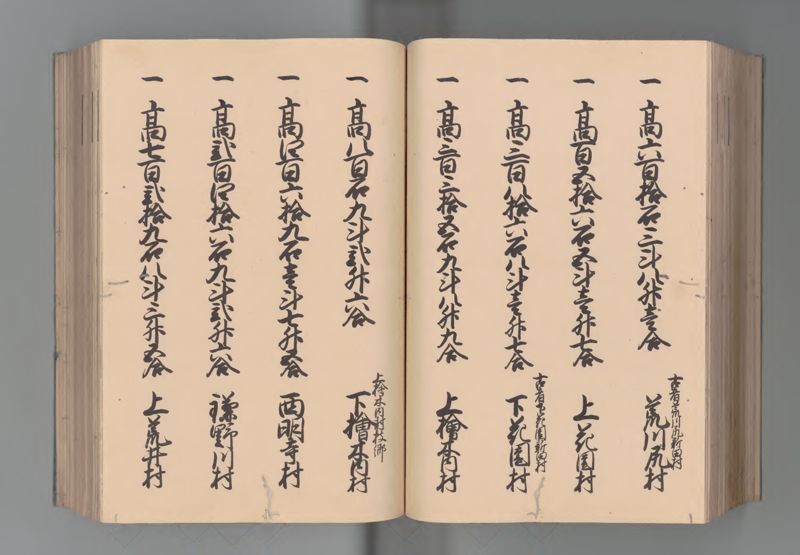 一 高六百拾石三斗八升壱合
古者荒川尻新田村
荒川尻村
一 高百五拾六石五斗壱升七合
上花園村
一 高三百八拾六石八斗壱升七合
古者下花園新田村
下花園村
一 高三百三拾五石九斗八升九合
上檜木内村
一 高八百石九斗弐升六合
上檜木内村枝郷
下檜木内村
一 高四百六拾九石壱斗七升五合
西明寺村
一 高弐百四拾六石九斗弐升六合
野川村
一 高七百弐拾九石八斗三升五合
上荒井村